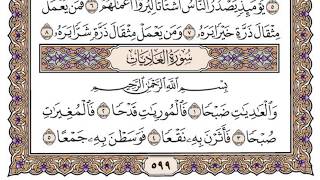 ٥ يَوْمَئِذٍ يَصْدُرُ ٱلنَّاسُ أَشْتَاتًا لِّيُرَوْا۟ أَعْمَٰلَهُمْ ٦ فَمَن يَعْمَلْ
مِثْقَالَ ذَرَّةٍ خَيْرًا يَرَهُۥ ٧ وَمَن يَعْمَلْ مِثْقَالَ ذَرَّةٍ شَرًّا يَرَهُۥ ٨
سُورَةُ العَادِيَات
بِسْمِ ٱللَّهِ ٱلرَّحْمَٰنِ ٱلرَّحِيمِ
وَٱلْعَٰدِيَٰتِ ضَبْحًا ١ فَٱلْمُورِيَٰتِ قَدْحًا ٢ فَٱلْمُغِيرَٰتِ
صُبْحًا ٣ فَأَثَرْنَ بِهِۦ نَقْعًا ٤ فَوَسَطْنَ بِهِۦ جَمْعًا ٥
٥٩٩